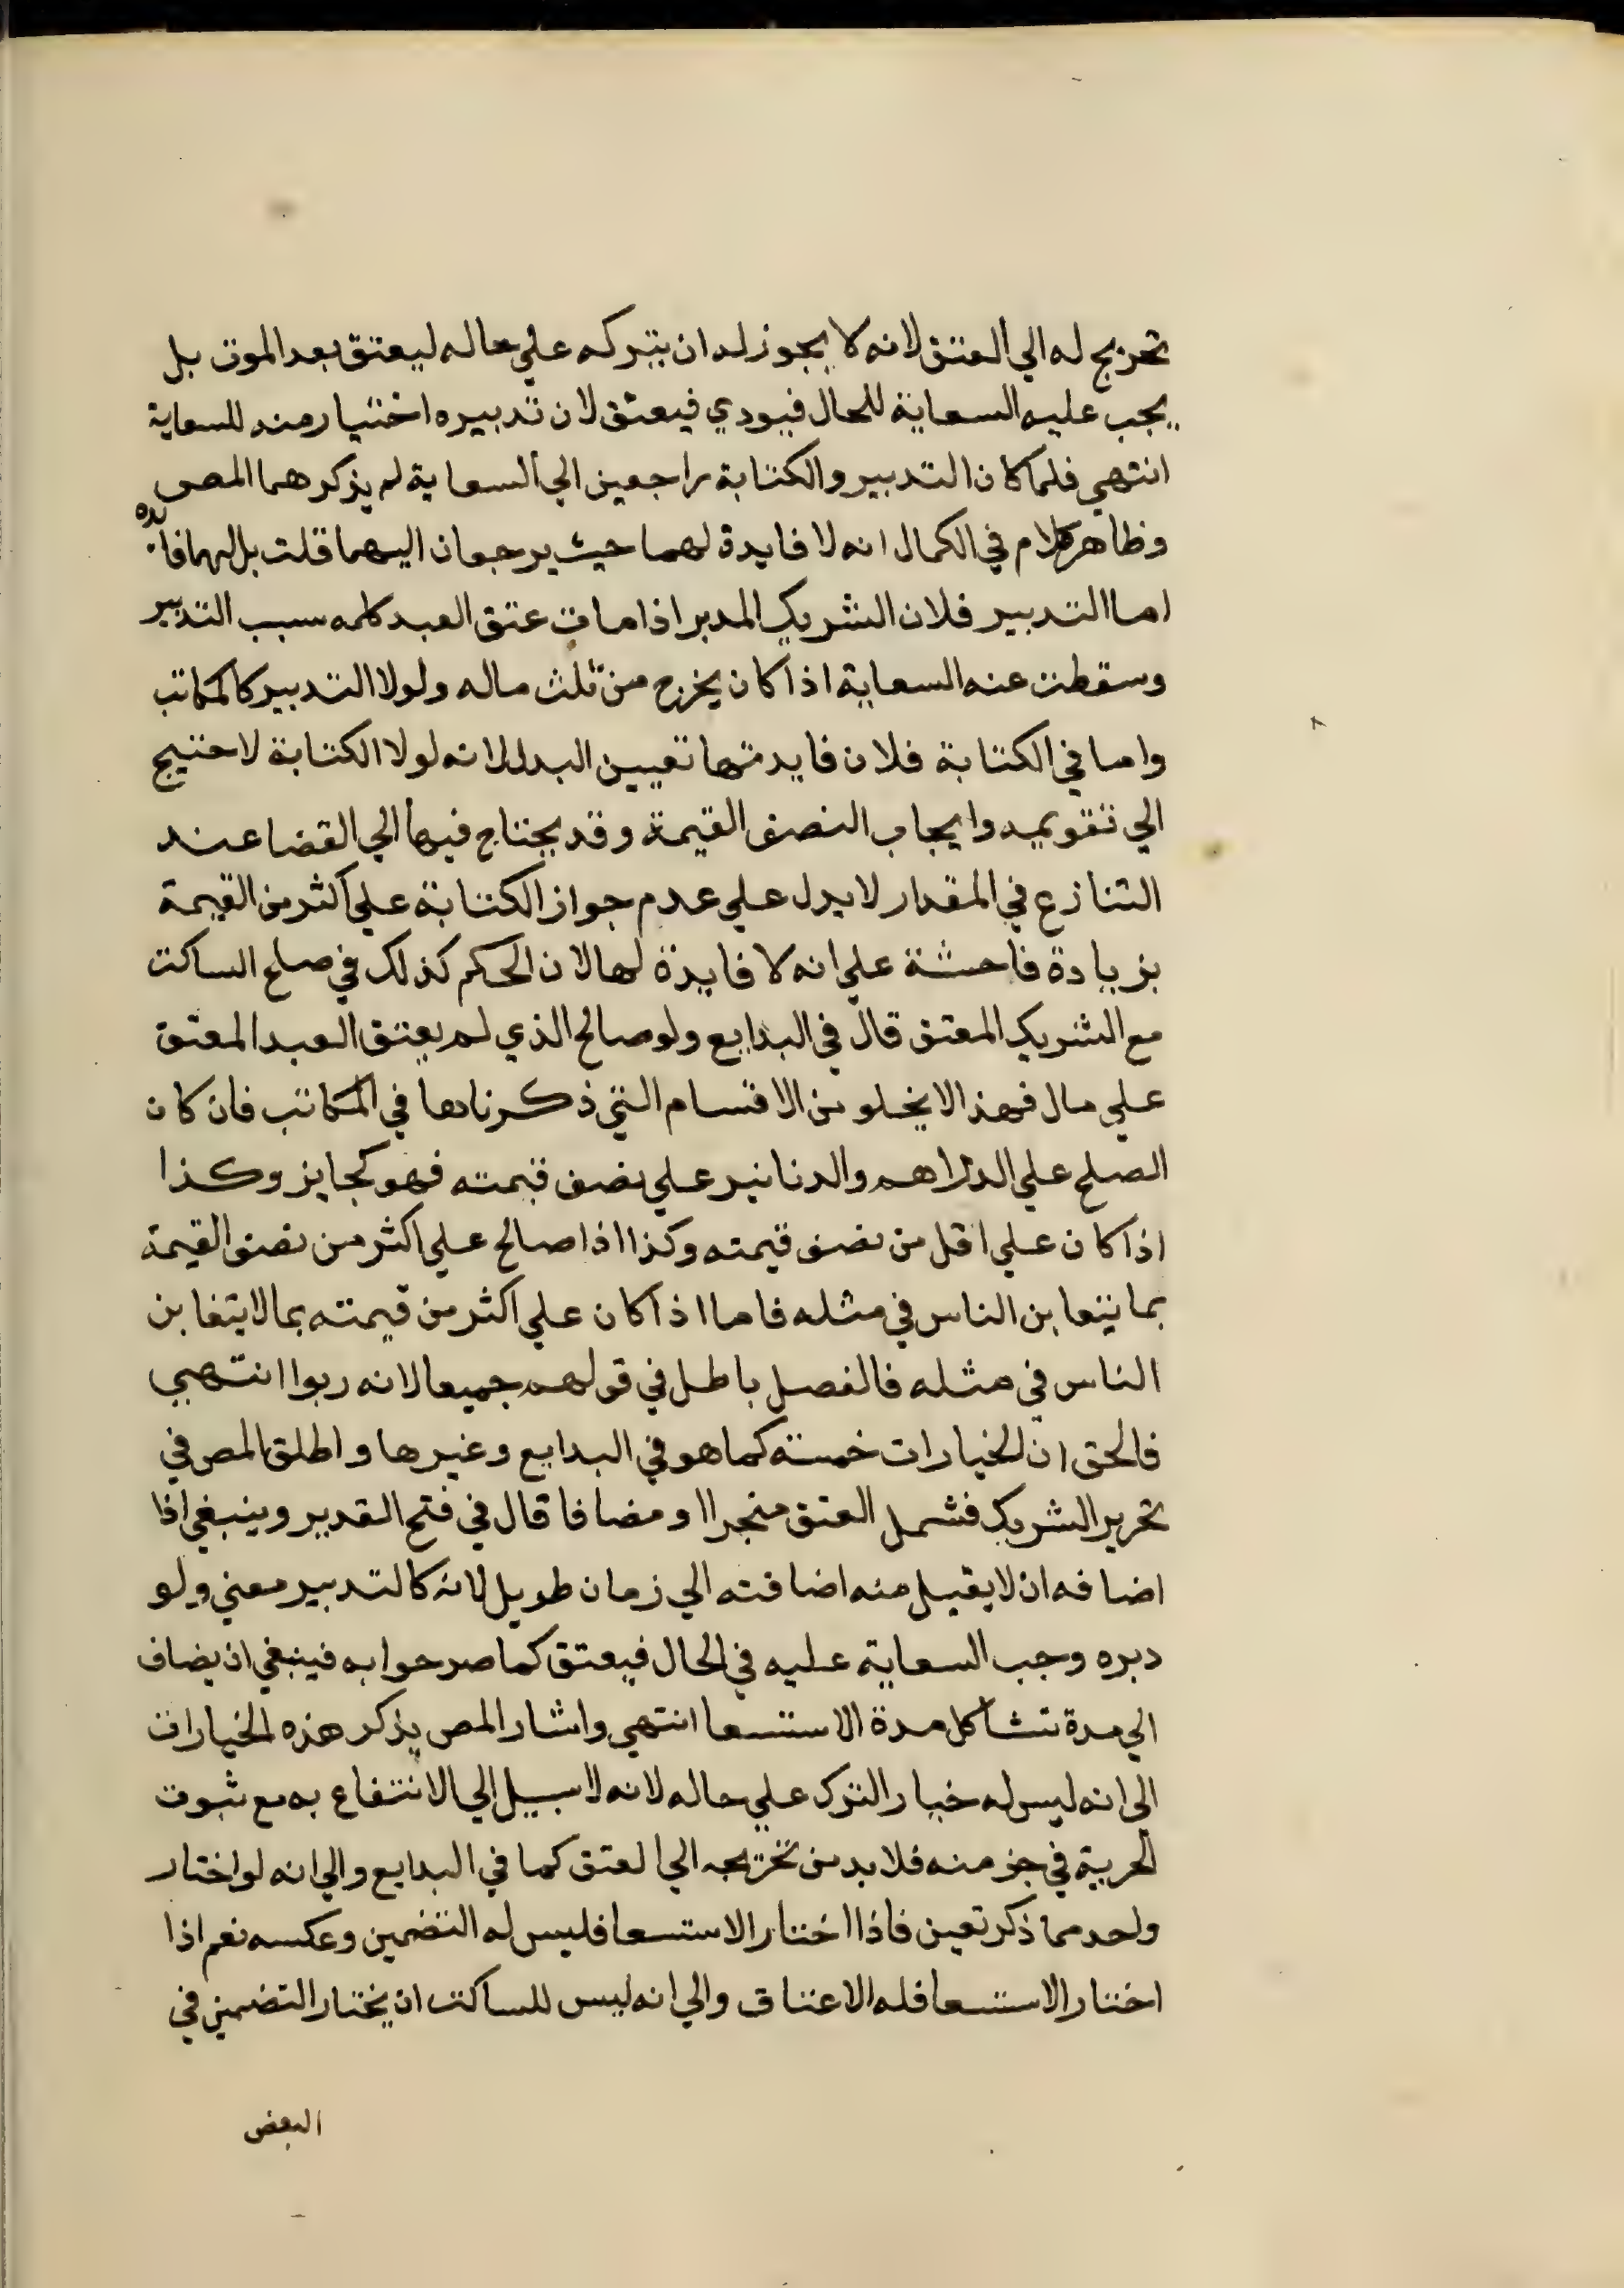 تحريج له الي العتق لانه لا يجوز له ان يتركه علي حاله ليعتق بعد الموت بل
يجب عليه السعاية للحال فيودي فيعتق لان تدبيره اختيار منه للسعاية
انتهي فلما كان التدبير والكتابة راجعين الي السعاية لم يذكرهما المص
وظاهر كلام في الكمال انه لا فايدة لهما حيث يرجعان اليهما قلت بل لهما فايده
اما التدبير فلان الشريك المدبر اذا مات عتق العبد كله سبب التدبير
وسقطت عنه السعاية اذا كان يخرج من ثلث ماله ولولا التدبير كالمكاتب
واما في الكتابة فلان فايدتها تعيين البدل لانه لولا الكتابة لاحتيج
الي تقويمه وايجاب النصف القيمة وقد يحتاج فيها الي القضا عند
التنازع في المقدار لا يدل علي عدم جواز الكتابة علي اكثر من القيمة
بزيادة فاحشة علي انه لا فايدة لها لان الحكم كذلك في صلح الساكت
مع الشريك المعتق قال في البدايع ولو صالح الذي لم يعتق العبد المعتق
علي مال فهذا لا يخلو من الاقسام التي ذكرناها في المكاتب فان كان
الصلح علي الدراهم والدنانير علي نصف قيمته فهو كجايز وكذا
اذا كان علي اقل من نصف قيمته وكذا اذا صالح علي اكثر من نصف القيمة
بما يتعابن الناس في مثله فاما اذا كان علي اكثر من قيمته بما لا يتغابن
الناس في مثله فالفصل باطل في قولهم جميعا لانه ربوا انتهي
فالحق ان الخيارات خمسته كما هو في البدايع وغيرها واطلق المص في
تحرير الشريك فشمل العتق منجرا او مضافا قال في فتح القدير وينبغي اذا
اضافه ان لا يقبل منه اضافته الي زمان طويل لانه كالتدبير معني ولو
دبره وجب السعاية عليه في الحال فيعتق كما صرحوا به فينبغي ان يضاف
الي مدة تشاكل مدة الاستسعا انتهي واشار المص بذكر هذه الخيارات
الي انه ليس له خيار الترك علي حاله لانه لا سبيل الي الانتفاع به مع ثبوت
الحرية في جز منه فلا بد من تخريجه الي العتق كما في البدايع والي انه لو اختار
واحد مما ذكر تعين فاذا اختار الاستسعا فليس له التضمين وعكسه نعم اذا
اختار الاستسعا فله الاعتاق والي انه ليس للساكت ان يختار التضمين في
البعض